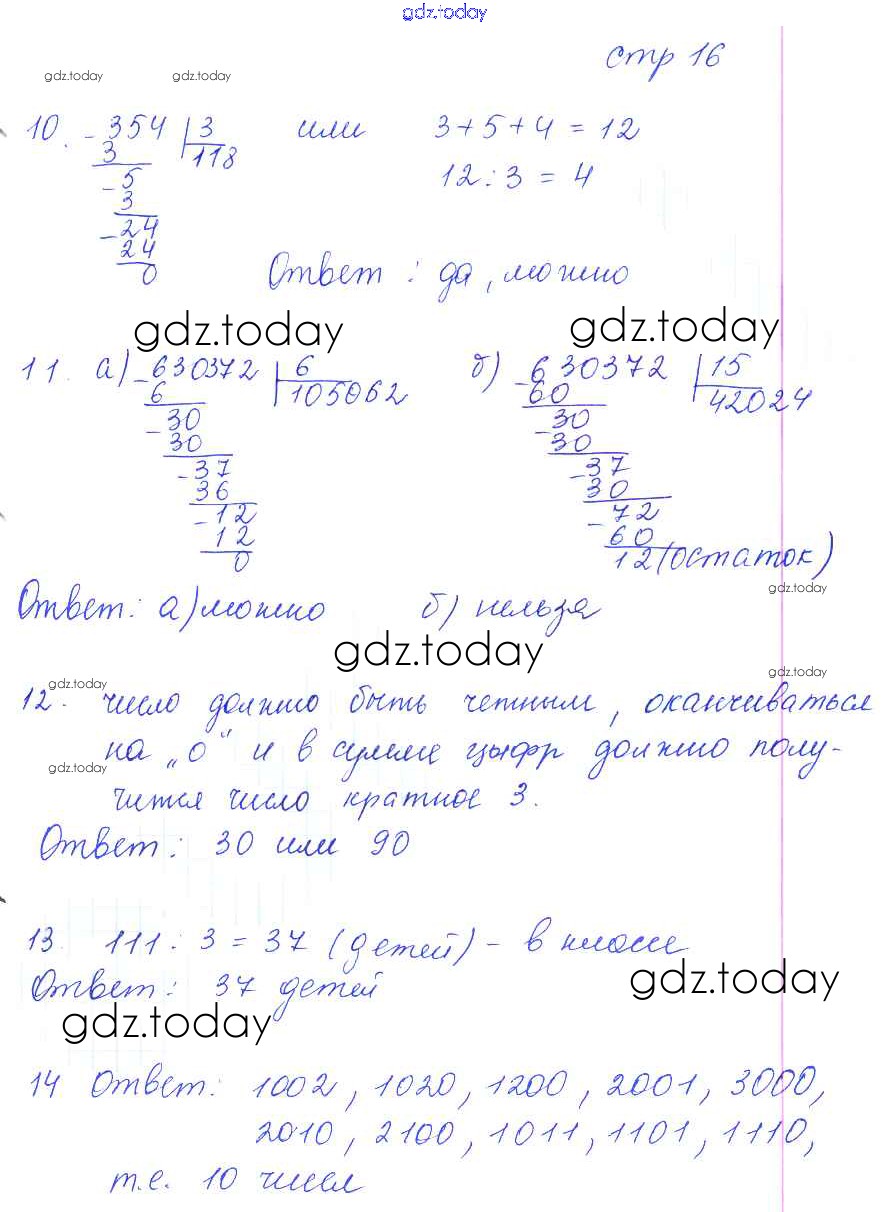 gdz.today
стр 16
gdz.today gdz.today
10. - 354 | 3 или 3+5+4 = 12
3 118
- 5 12 : 3 = 4
3
- 24
24
0 Ответ : да, можно
gdz.today gdz.today
11. а) - 630372 | 6 б) - 630372 | 15
6 105062 60 42024
- 30 - 30
30 30
- 37 - 37
36 30
- 12 - 72
12 60
0 12 (остаток)
gdz.today
Ответ: а) можно б) нельзя
gdz.today
gdz.today gdz.today
12. число должно быть четным, оканчиваться
на „0" и в сумме цыфр должно полу-
gdz.today
чится число кратное 3.
Ответ: 30 или 90
13. 111 : 3 = 37 (детей) - в классе
Ответ: 37 детей
gdz.today
gdz.today
14 Ответ: 1002, 1020, 1200, 2001, 3000,
2010, 2100, 1011, 1101, 1110,
т.е. 10 чисел